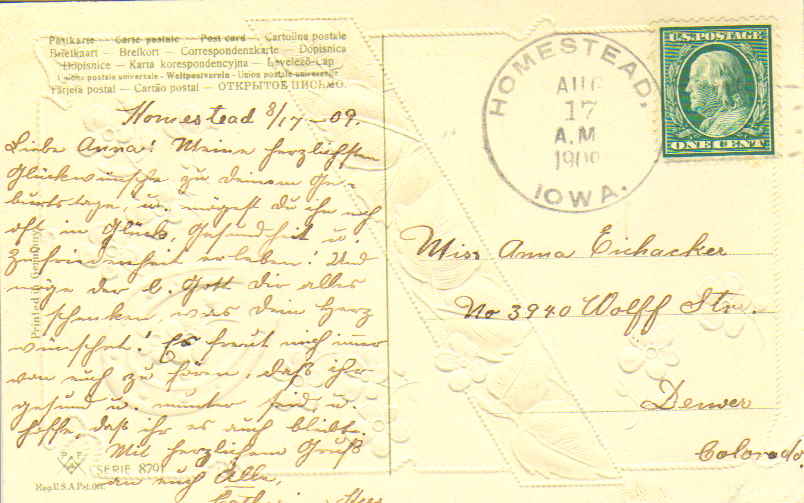 Postkarte — Carte postale — Post card — Cartolina postale
Briefkaart — Brefkort — Correspondenzkarte — Dopisnica
Dopisnice — Karta korespondencyjna — Levelező-Lap
Union postale universelle - Weltpostverein - Union postale universelle
Tarjeta postal — Cartão postal — ОТКРЫТОЕ ПИСЬМО.
Homestead 8/17 - 09.
Liebe Anna! Meine herzlichsten
Glückwünsche zu deinem Ge-
burtstage, u. mögest du ihn noch
oft in Glück, Gesundheit u.
Zufriedenheit erleben! Und
möge der l. Gott dir alles
schenken, was dein Herz
wünschet! Es freut mich immer
von euch zu hören, daß ihr
gesund u. munter seid, u.
hoffe, daß ihr es auch bleibt.
Mit herzlichem Gruß
an euch Alle,
Printed in Germany
SERIE 8791
Reg. U.S.A Pat. Off.
HOMESTEAD,
AUG
17
A.M
190
IOWA.
U.S. POSTAGE
ONE CENT
Miss Anna Eichacker
No 3940 Wolff Str.
Denver
Colorado.